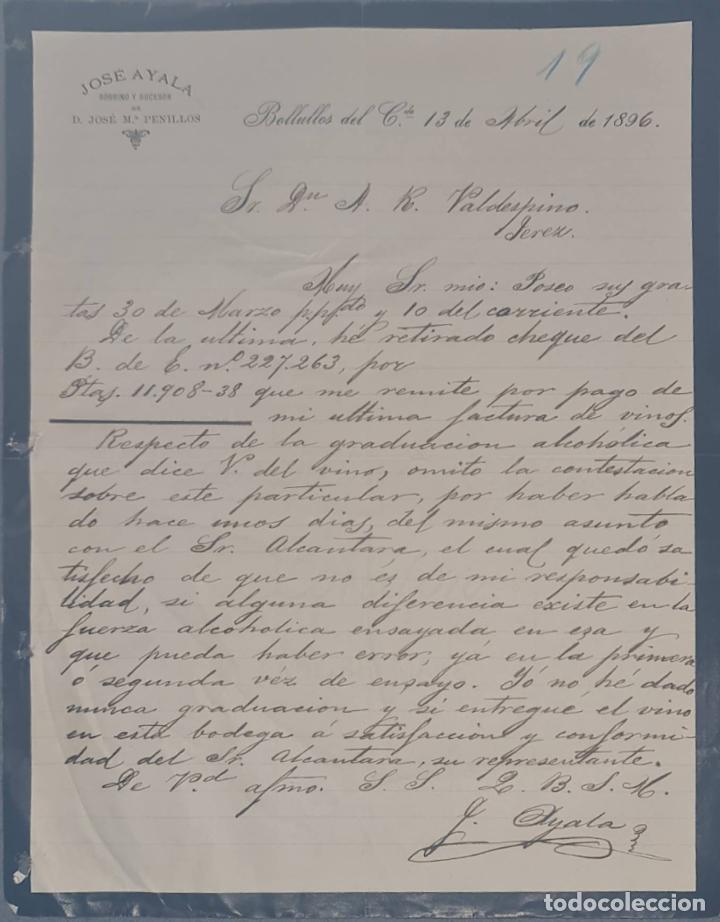 19
JOSÉ AYALA
SOBRINO Y SUCESOR
DE
D. JOSÉ M.ª PENILLOS
Bollullos del C.do 13 de Abril de 1896.
Sr. Dn A. R. Valdespino.
Jerez.
Muy Sr. mio: Poseo sus gra-
tas 30 de Marzo p/pfdo y 10 del corriente.
De la ultima, hé retirado cheque del
B. de E. n.º 227.263, por
Ptas. 11.908-38 que me remite por pago de
mi ultima factura de vinos.
Respecto de la graduacion alcohólica
que dice V. del vino, omito la contestacion
sobre este particular, por haber habla
do hace unos dias, del mismo asunto
con el Sr. Alcantara, el cual quedó sa
tisfecho de que no és de mi responsabi-
lidad, si alguna diferencia existe en la
fuerza alcoholica ensayada en esa y
que pueda haber error, yá en la primera
ó segunda véz de ensayo. Yó no hé dado
nunca graduacion y si entregue el vino
en esta bodega á satisfacción y conformi-
dad del Sr. Alcantara, su representante.
De V.d afmo. S. S. Q. B. S. M.
J. Ayala
todocoleccion.net